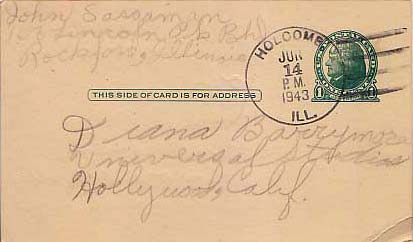 John Sassaman
Lincoln
Rockford, Illinois
HOLCOMB
JUN
14
P.M.
1943
ILL.
1 1
THIS SIDE OF CARD IS FOR ADDRESS
Diana Barrymore
Universal Studios
Hollywood, Calif.